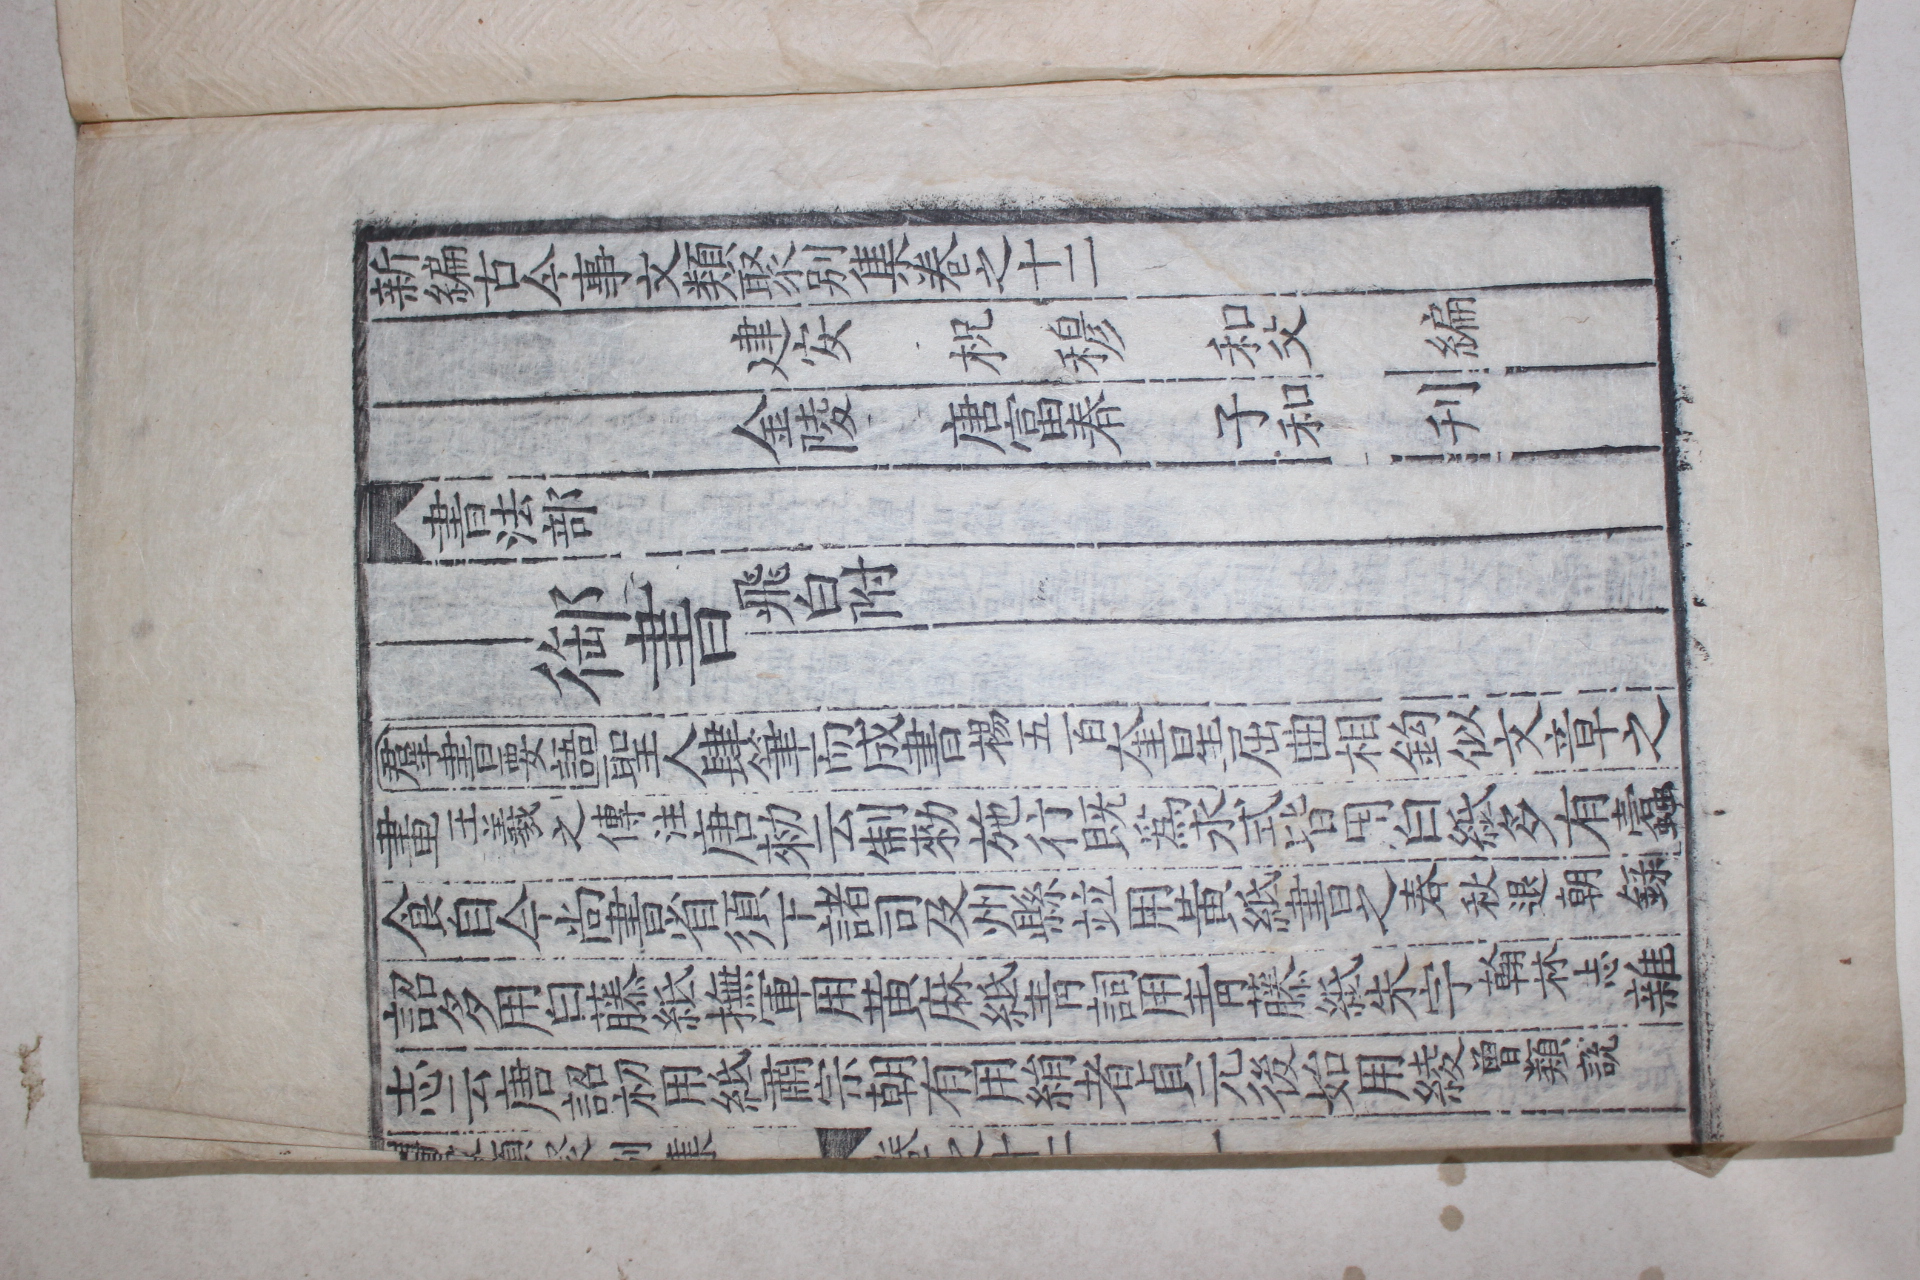 新編古今事文類聚別集卷之十二
建安 祝 穆 和父 編
金陵 唐富春 子和 刊
書法部
御書 飛白附
羣書要語 聖人肆筆而成書 楊五百 奎星屈曲相鈎似文章之
畫 王羲之傳注 唐勑云制勑施行既爲永式皆用白紙多有蠧
食自今尚書省須下諸司及州縣竝用黃紙書之 春秋退朝錄
詔多用白藤紙撫軍用黃麻紙青詞用青藤紙朱字 翰林志 雜
志云唐詔初用紙肅宗朝有用絹者貞元後始用綾 曾類說
類聚別集 卷之十二 一